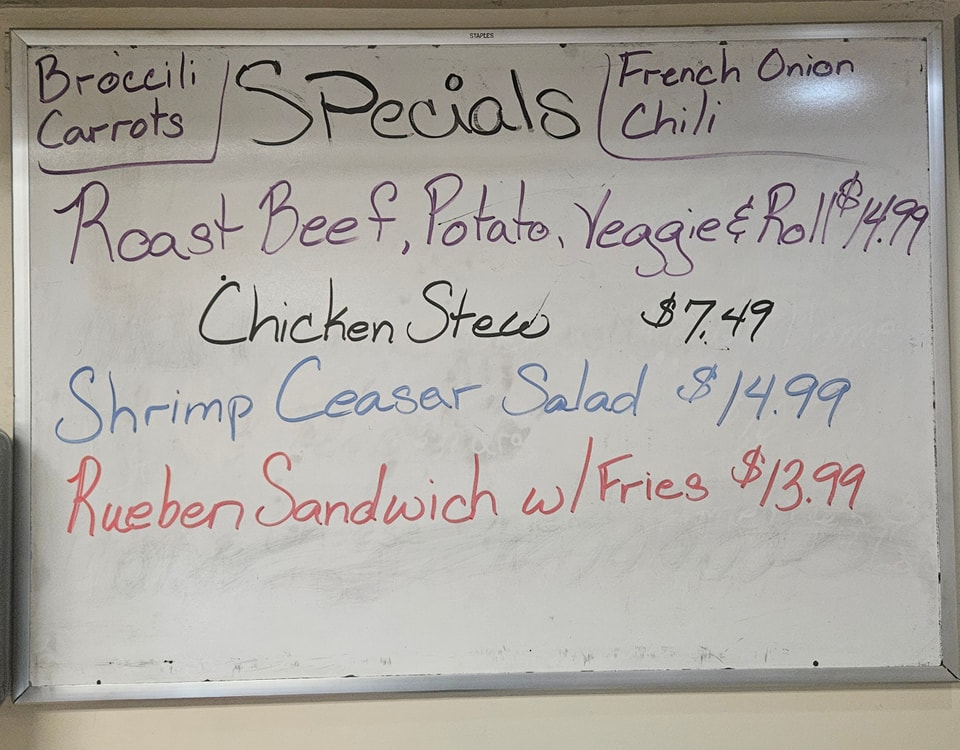 STAPLES
Broccili
Carrots
Specials
French Onion
Chili
Roast Beef, Potato, Veggie & Roll $14.99
Chicken Stew $7.49
Shrimp Ceasar Salad $14.99
Rueben Sandwich w/Fries $13.99